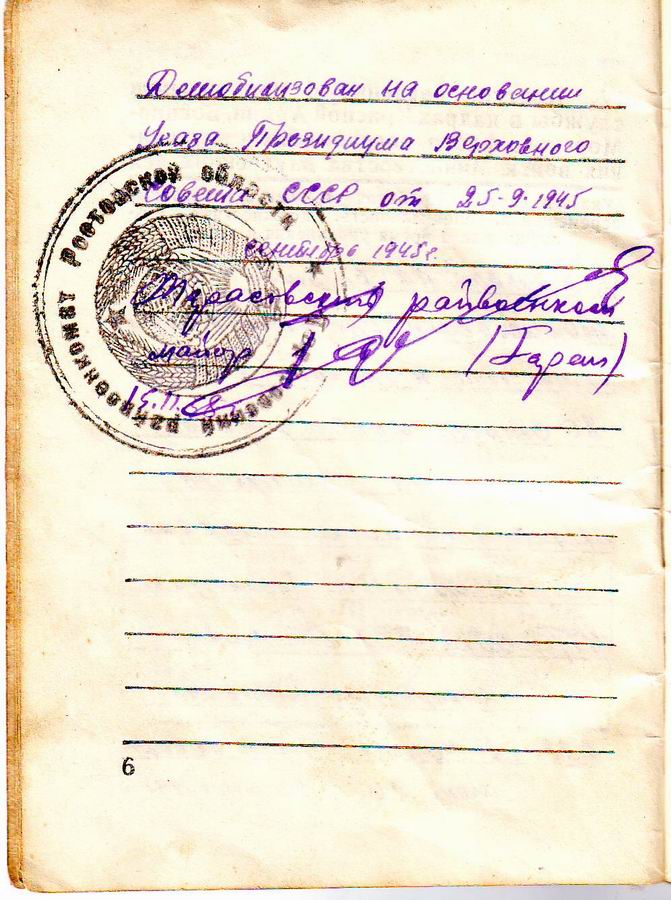 Демобилизован на основании
Указа Президиума Верховного
Совета СССР от 25-9-1945
сентябрь 1945г.
Тарасовский райвоенком
майор
Ростовской области
райвоенкомат
6